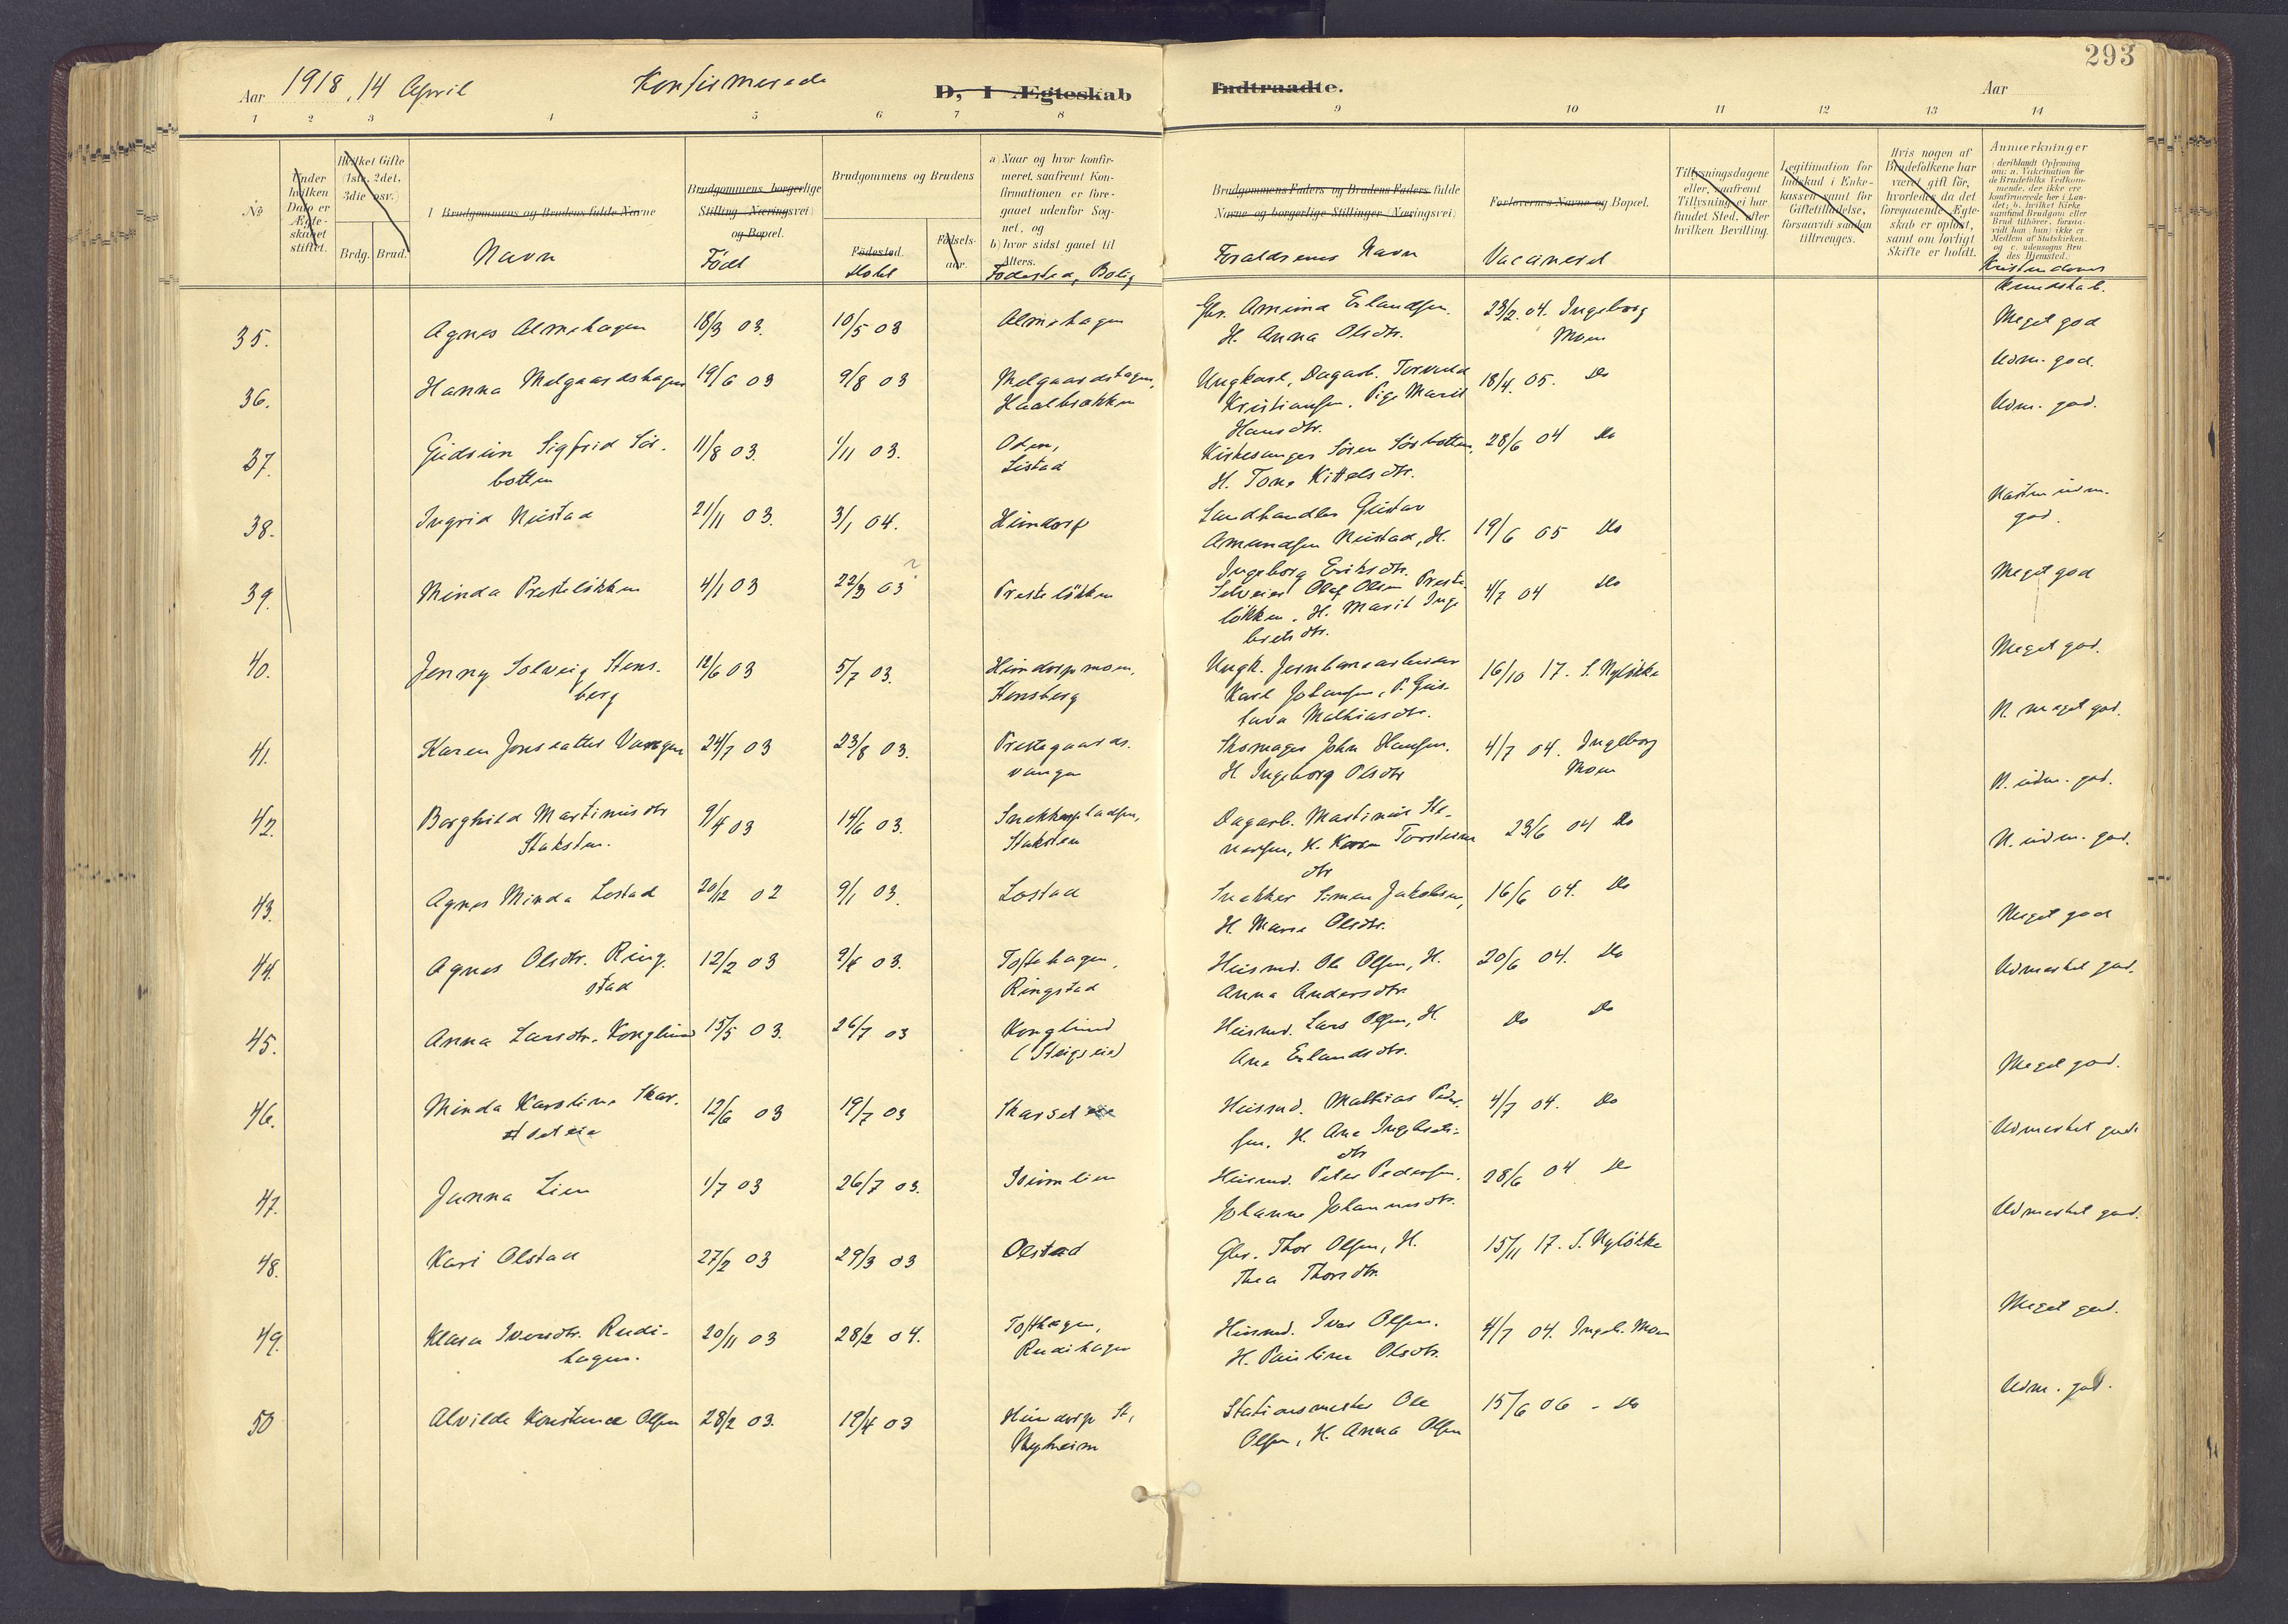 293
Aar 1918, 14 April Konfirmerede D, I Ægteskab Indtraadte. Aar
1 2 3 4 5 6 7 8 9 10 11 12 13 14
No
Under hvilken Dato er Ægteskabet stiftet.
Hvilket Gifte (1ste, 2det, 3die osv.)
Brdg. Brud.
1 Brudgommens og Brudens fulde Navne
Navn
Brudgommens borgerlige Stilling (Næringsvei) og Bopæl.
Født
Brudgommens og Brudens
Fødested.
Døbt
Fødsels-aar.
a) Naar og hvor konfir-
meret, saafremt Kon-
firmationen er fore-
gaaet udenfor Sog-
net, og
b) hvor sidst gaaet til
Alters.
Fødested, Bolig
Brudgommens Faders og Brudens Faders fulde
Navne og borgerlige Stillinger (Næringsvei)
Forældrenes Navn
Forlovernes Navne og Bopæl.
Vaccineret
Tillysningsdagene
eller, saafremt
Tillysning ei har
fundet Sted, efter
hvilken Bevilling.
Legitimation for
Indskud i Enke-
kassen samt for
Giftetilladelse,
forsaavidt saadan
tiltrænges.
Hvis nogen af
Brudefolkene har
været gift før,
hvorledes da det
foregaaende Ægte-
skab er opløst,
samt om lovligt
Skifte er holdt.
Anmærkninger
(deriblandt Oplysning
om: a. Vakcination for
de Brudefolks Vedkom-
mende, der ikke ere
konfirmerede her i Lan-
det; b. hvilket Kirke
samfund Brudgom eller
Brud tilhører, forsaa-
vidt han (hun) ikke er
Medlem af Statskirken,
og c. udensogns Bru
des Hjemsted.
Kristendoms
kundskab.
35. Agnes Almehagen 18/3 03. 10/5 03 Almehagen Gbr. Amund Erlandsen. 23/2 04. Ingeborg Meget god
H. Anna Olsdtr. Moen
36. Hanna Melgaardshagen 19/6 03 9/8 03 Melgaardshagen, Ungkarl, Dagarb. Torvald 18/4 05. Do Udm. god.
Haalbrækken Kristiansen. Pige Marit
Hansdtr.
37. Gudrun Sigfrid Sør- 11/8 03. 1/11 03. Oden, Kirkesanger Søren Sørbotten, 28/6 04 Do Udm. god.
botten Listad H. Tone Kittelsdtr.
38. Ingrid Nustad 21/11 03. 3/1 04. Hundorp Landhandler Gustav Næsten udm.
Amundsen Nustad, H. 19/6 05 Do god.
Ingeborg Eriksdtr.
39. Minda Presteløkken 4/1 03 22/3 03 ? Presteløkken Selveier Olaf Olsen Preste- 4/7 04 Do Meget god
løkken. H. Marit Inge
bretsdtr.
40. Jenny Solveig Stens- 12/6 03 5/7 03. Hundorpmoen, Ungk. Jernbanearbeider 16/10 17. S. Nyløkke Meget god.
berg Stensberg Karl Johansen, P. Gus-
tava Mathiasdtr.
41. Karen Jonsdatter Vangen 24/7 03 23/8 03. Prestegaards- Skomager John Hansen. 4/7 04. Ingeborg N. meget god.
vangen H. Ingeborg Olsdtr Moen
42. Borghild Martinusdtr 9/4 03 14/6 03. Snekkerpladsen, Dagarb. Martinus Ste- 23/6 04 Do N. udm. god.
Staksten. Staksten nersen, H. Karen Torstens
dtr
43. Agnes Minda Lostad 20/12 02 9/1 03. Lostad Snekker Simen Jakobsen, 16/6 04. Do N. udm. god.
H. Marie Olsdtr.
44. Agnes Olsdtr. Ring- 12/2 03 9/4 03. Toftehagen, Husmd. Ole Olsen, H. 20/6 04. Do Meget god
stad Ringstad Anna Andersdtr.
45. Anna Larsdtr. Konglund 15/5 03. 26/7 03 Konglund Husmd. Lars Olsen, H. Do Do Udmærket god.
(Steigseie) Ane Erlandsdtr.
46. Minda Karoline Skar- 12/6 03 19/7 03 Skarset Husmd. Mathias Peder- 4/7 04. Do Meget god.
seteie sen. H. Ane Ingebrets-
dtr
47. Janna Lien 1/7 03 26/7 03. Husmd. Peter Pedersen. 28/6 04 Do Udmærket god.
Johanne Johannesdtr.
48. Kari Olstad 27/2 03 29/3 03 Olstad Gbr. Thor Olsen, H. 15/11 17. S. Nyløkke Udmærket god.
Thea Thorsdtr.
49. Klara Iversdtr. Rudi- 20/11 03 28/2 04. Tofthagen, Husmd. Iver Olsen. 4/7 04. Ingeb. Moen Meget god.
hagen. Rudihagen H. Pauline Olsdtr.
50 Alvilde Konstance Olsen 28/2 03. 19/4 03 Hundorp St, Stationsmester Ole 15/6 06 - Do Udm. god.
Nyheim Olsen, H. Anna Olsen